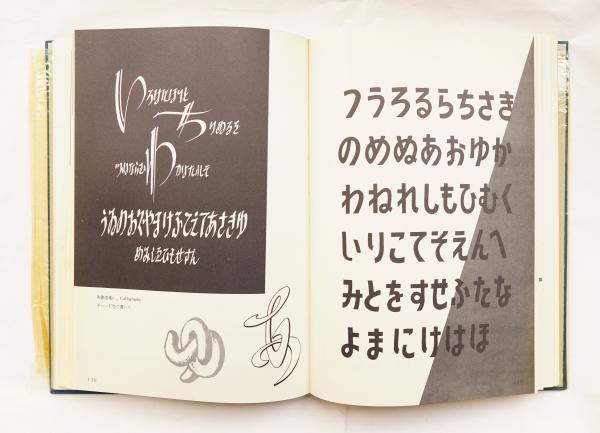 いろはにほへと
ちりぬるを
つねならむ わかよたれそ
うゐのおくやまけふこえてあさきゆ
めみしゑひもせすん
Calligraphy
ゆ あ
つうろるらちさき
のめぬあおゆか
わねれしもひむく
いりこてそえんへ
みとをすせふたな
よまにけはほ